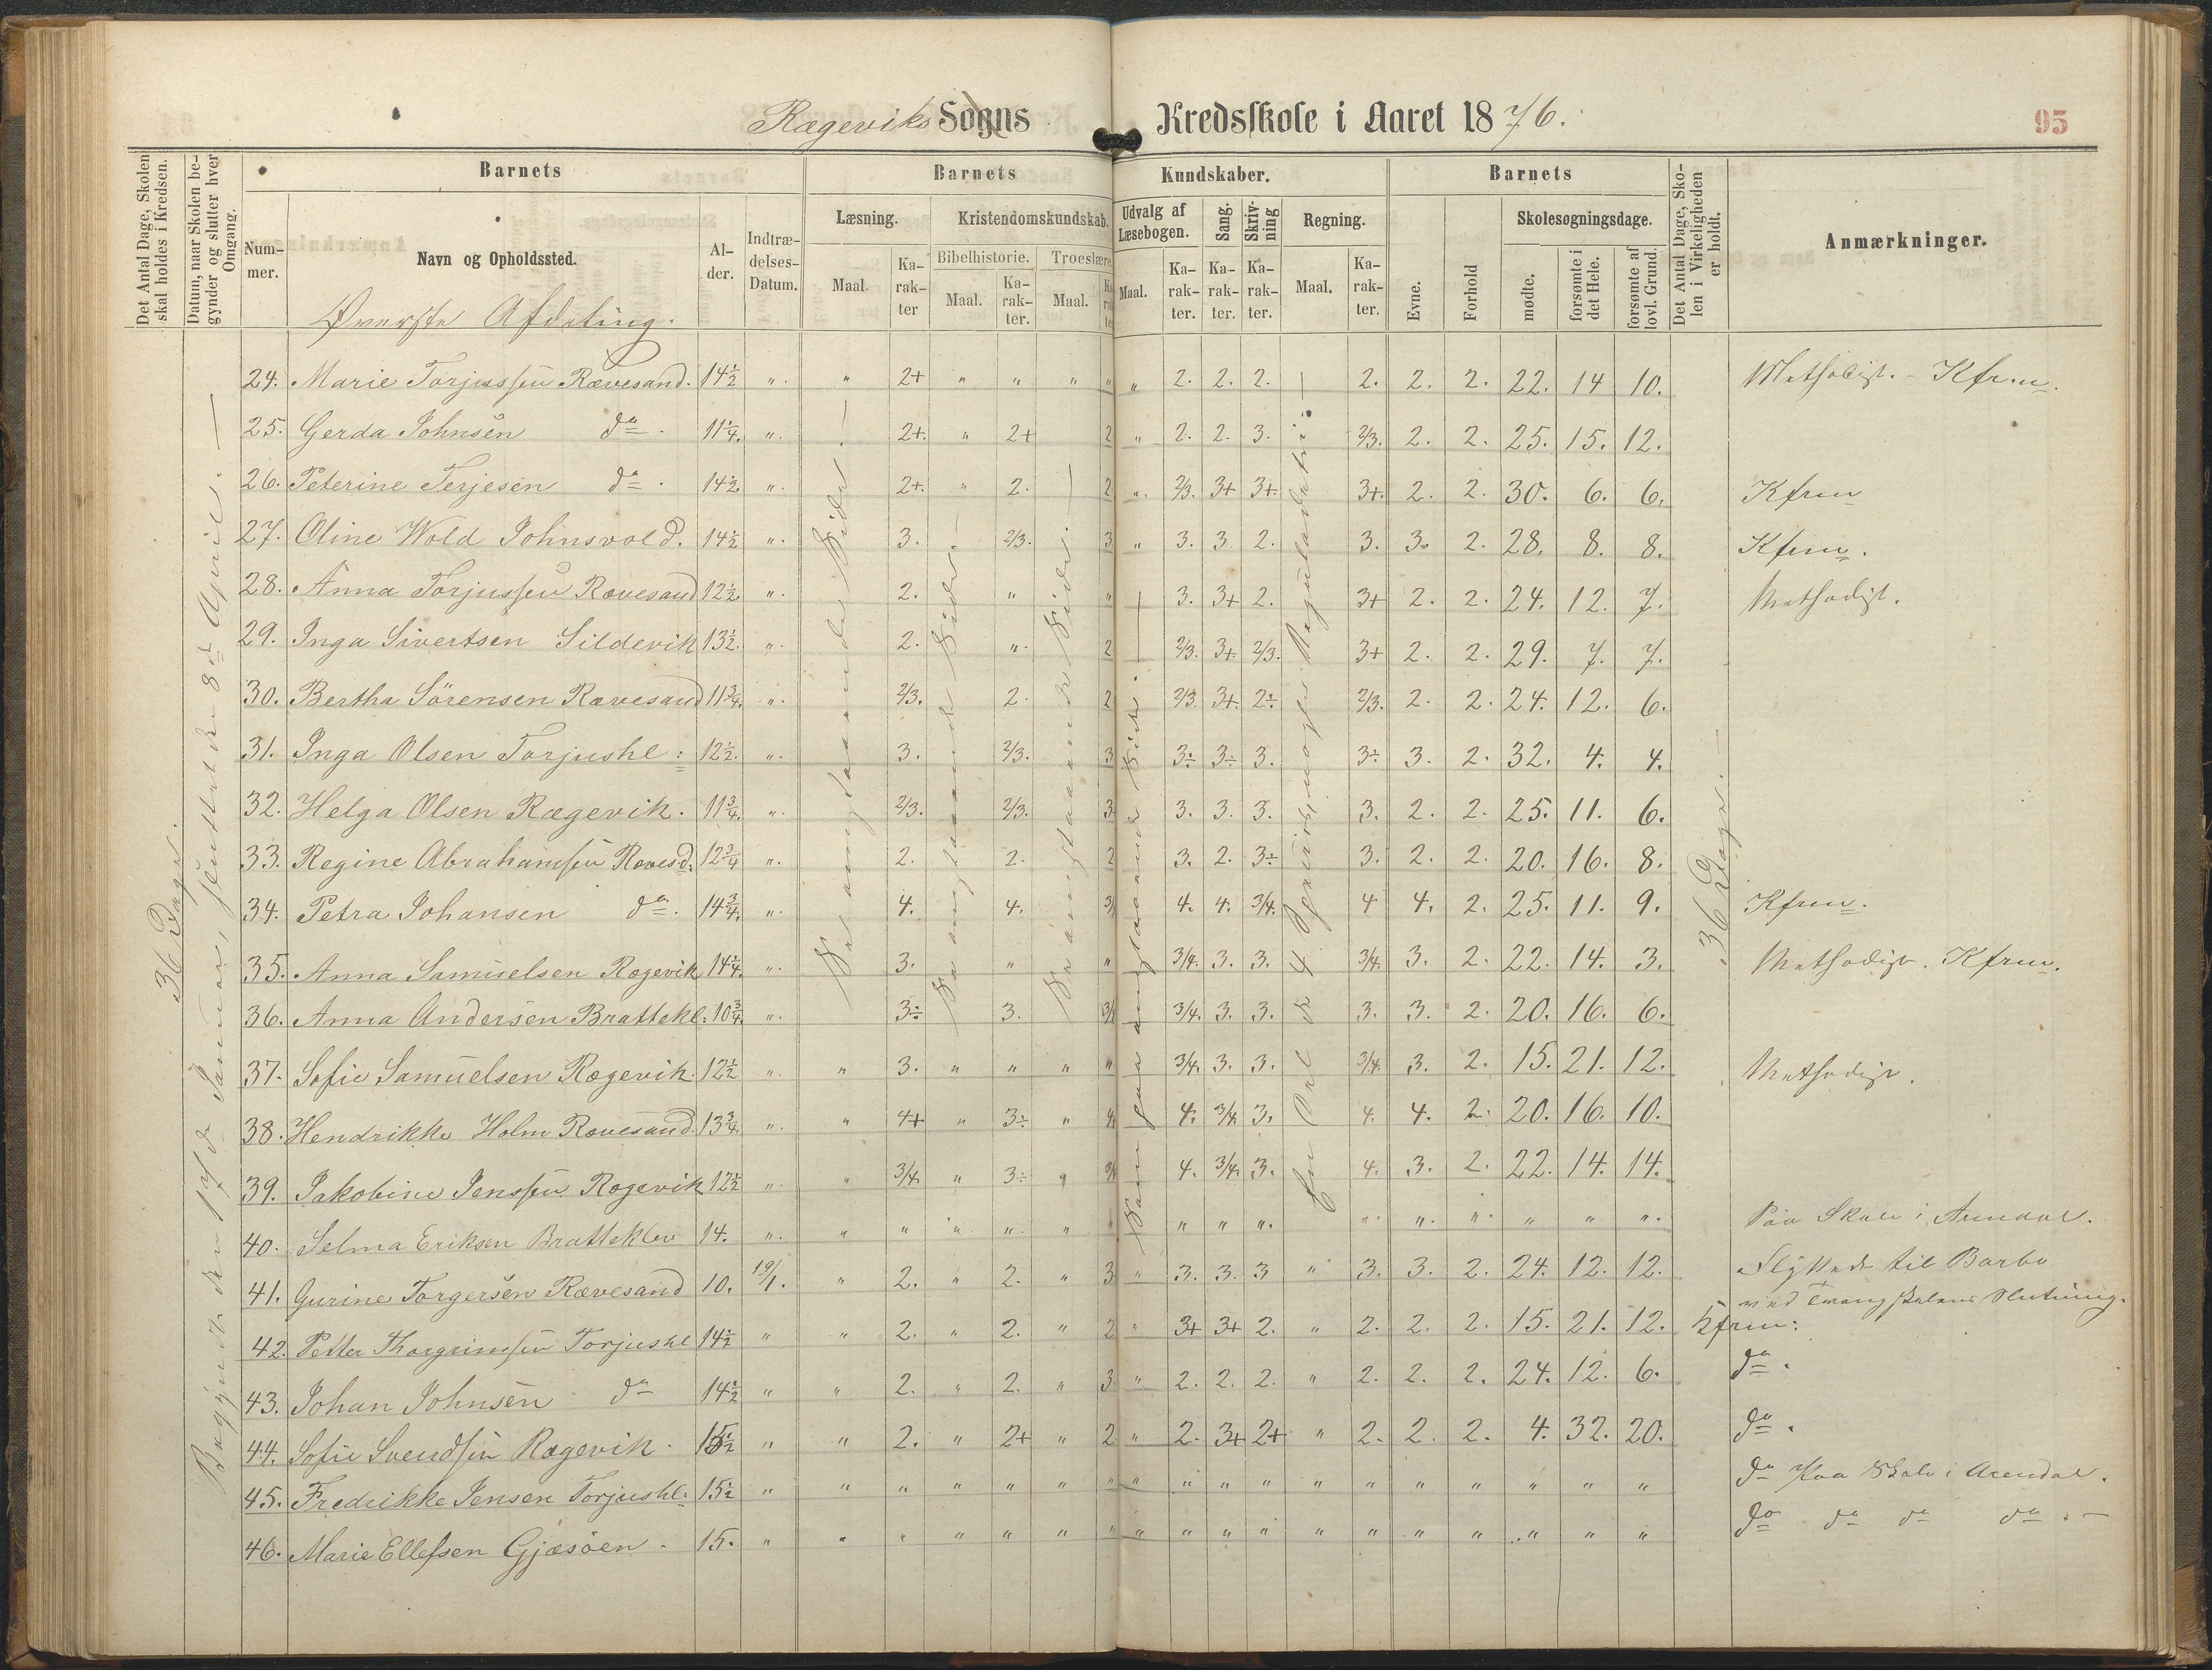 Rægeviks Sogns Kredsskole i Aaret 1876.
95
Det Antal Dage, Skolen skal holdes i Kredsen.
Datum, naar Skolen begynder og slutter hver Omgang.
Barnets
Nummer.
Navn og Opholdssted.
Alder.
Indtrædelses-Datum.
Barnets Kundskaber.
Læsning.
Maal.
Karakter
Kristendomskundskab.
Bibelhistorie.
Maal.
Karakter.
Troeslære
Maal.
Udvalg af Læsebogen.
Maal.
Karakter.
Sang.
Karakter.
Skrivning
Karakter.
Regning.
Maal.
Karakter.
Barnets
Evne.
Forhold
Skolesøgningsdage.
mødte.
forsømte i det Hele.
forsømte af lovl. Grund.
Det Antal Dage, Skolen i Virkeligheden er holdt.
Anmærkninger.
Øverste Afdeling.
36 Dage.
Begyndt den 17de Januar, sluttet den 8de April. —
36 Dage.
24. Marie Torjussen Rævesand. 14½ " " 2+ " " " " " 2. 2. 2. 2. 2. 2. 22. 14 10. Methodist. - Kfrm.
25. Gerda Johnsen do. 11¼. " 2+. " 2+ 2 " 2. 2. 3. 2/3. 2. 2. 25. 15. 12.
26. Peterine Terjesen do. 14½. " 2+. " 2. 2 " 2/3. 3+ 3+. 3+. 2. 2. 30. 6. 6. Kfrm
27. Oline Wold Johnsvold. 14½ " 3. 2/3. 3 " 3. 3. 2. 3. 3. 2. 28. 8. 8. Kfrm.
28. Anna Torjussen Rævesand 12½. " 2. " " 3. 3+ 2. 3+ 2. 2. 24. 12. 7. Methodist.
29. Inga Sivertsen Sildevik 13½. " 2. " 2 2/3. 3+. 2/3. 3+ 2. 2. 29. 7. 7.
30. Bertha Sörensen Rævesand 11¾. " 2/3. 2. 2 2/3. 3+. 2÷ 2/3. 2. 2. 24. 12. 6.
31. Inga Olsen Torjushl: 12½. " 3. 2/3. 3 3÷ 3÷ 3. 3÷ 3. 2. 32. 4. 4.
32. Helga Olsen Rægevik. 11¾. " 2/3. 2/3. 3 3. 3. 3. 3. 2. 2. 25. 11. 6.
33. Regine Abrahamsen Rævesd. 12¾ " 2. 2. 2 3. 2. 3÷ 3. 2. 2. 20. 16. 8.
34. Petra Johansen do. 14¾. " 4. 4. 4. 4. 3/4. 4 4. 2. 25. 11. 9. Kfrm.
35. Anna Samuelsen Rægevik 14¼. " 3. " " 3/4. 3. 3. 3/4. 3. 2. 22. 14. 3. Methodist. Kfrm.
36. Anna Andersen Brattekl: 10¾. " 3÷ 3. 3/4. 3. 3. 3. 3. 2. 20. 16. 6.
37. Sofie Samuelsen Rægevik. 12½ " " 3. " " " " 3/4. 3. 3. 3/4. 3. 2. 15. 21. 12. Methodist.
38. Hendrikke Holm Rævesand. 13¾. " " 4+ " 3÷ " 4. 3/4. 3. 4. 4. 2. 20. 16. 10.
39. Jakobine Jenssen Rægevik 12½ " " 3/4. " 3÷ " 4. 3/4. 3. 4. 3. 2. 22. 14. 14.
40. Selma Eriksen Bratteklev 14. " " " " " " " " " " " " " " " " Paa Skole i Arendal.
41. Gurine Torgersen Rævesand 10. 19/1. " 2. " 2. " 3 " 3. 3. 3 " 3. 3. 2. 24. 12. 12. Flyttede til Barbo
ved Omgangskolens Slutning.
42. Petter Thorgrimsen Torjushl 14½ " " 2. " 2. " 2 " 3+ 3+ 2. " 2. 2. 2. 15. 21. 12. Kfrm:
43. Johan Johnsen do 14½ " " 2. " 2. " 3 " 2. 2. 2. " 2. 2. 2. 24. 12. 6. do.
44. Sofie Svendsen Rægevik. 15½ " " 2. " 2+ " 2 " 2. 3+ 2+ " 2. 2. 2. 4. 32. 20. do.
45. Fredrikke Jensen Torjushl: 15½ " " " " " " " " " " " " " " " " " " do Paa Skole i Arendal.
46. Marie Ellefsen Gjæsöen. 15. " " " " " " " " " " " " " " " " " " do do do do. —